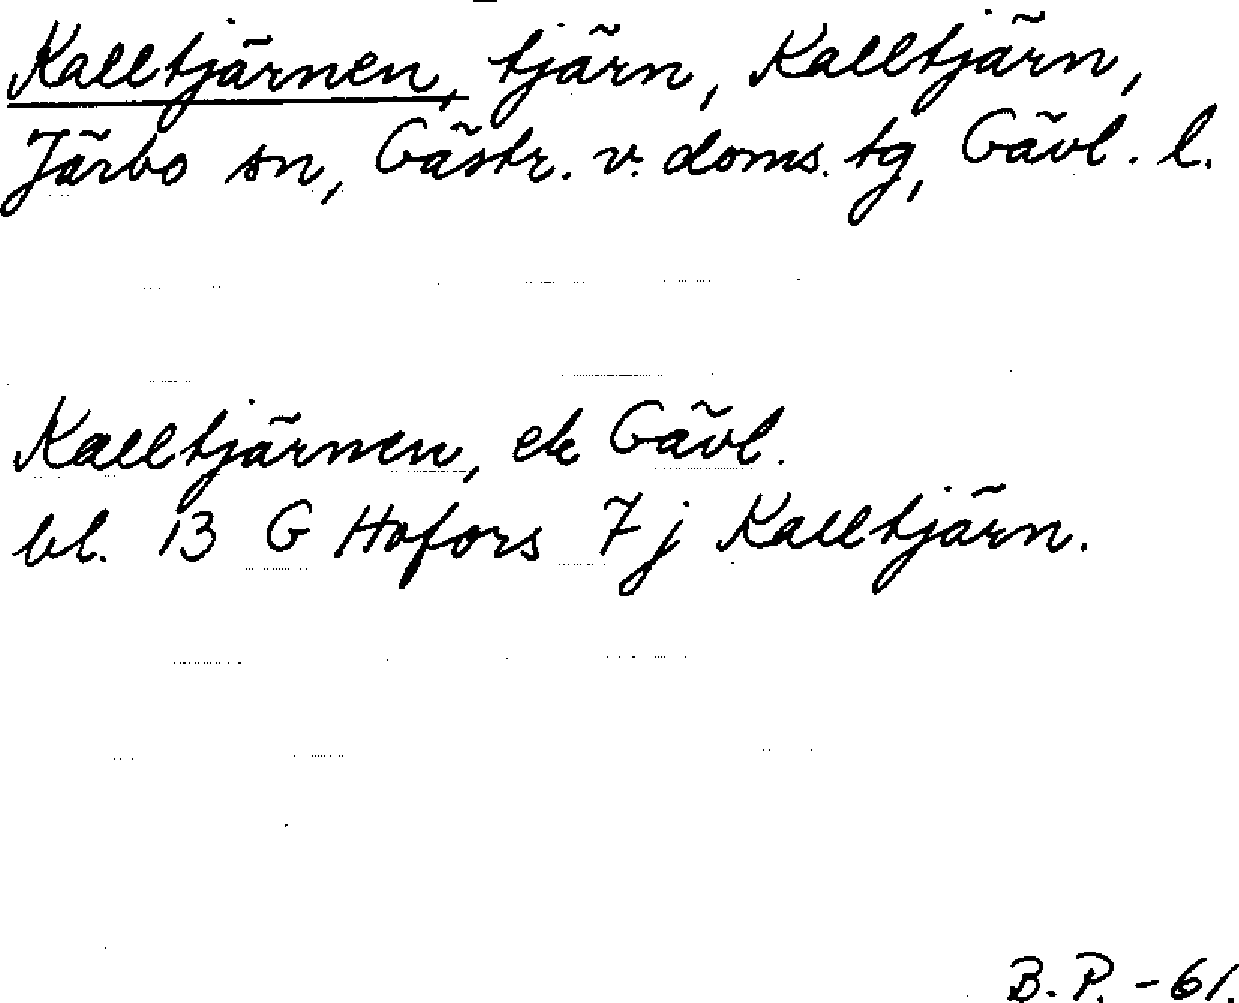 Kalltjärnen, tjärn, Kalltjärn,
Järbo sn, Gästr. v. doms. tg, Gävl. l.
Kalltjärnen, ek Gävl.
bl. 13 G Hofors 7 j Kalltjärn.
B. P. - 61.